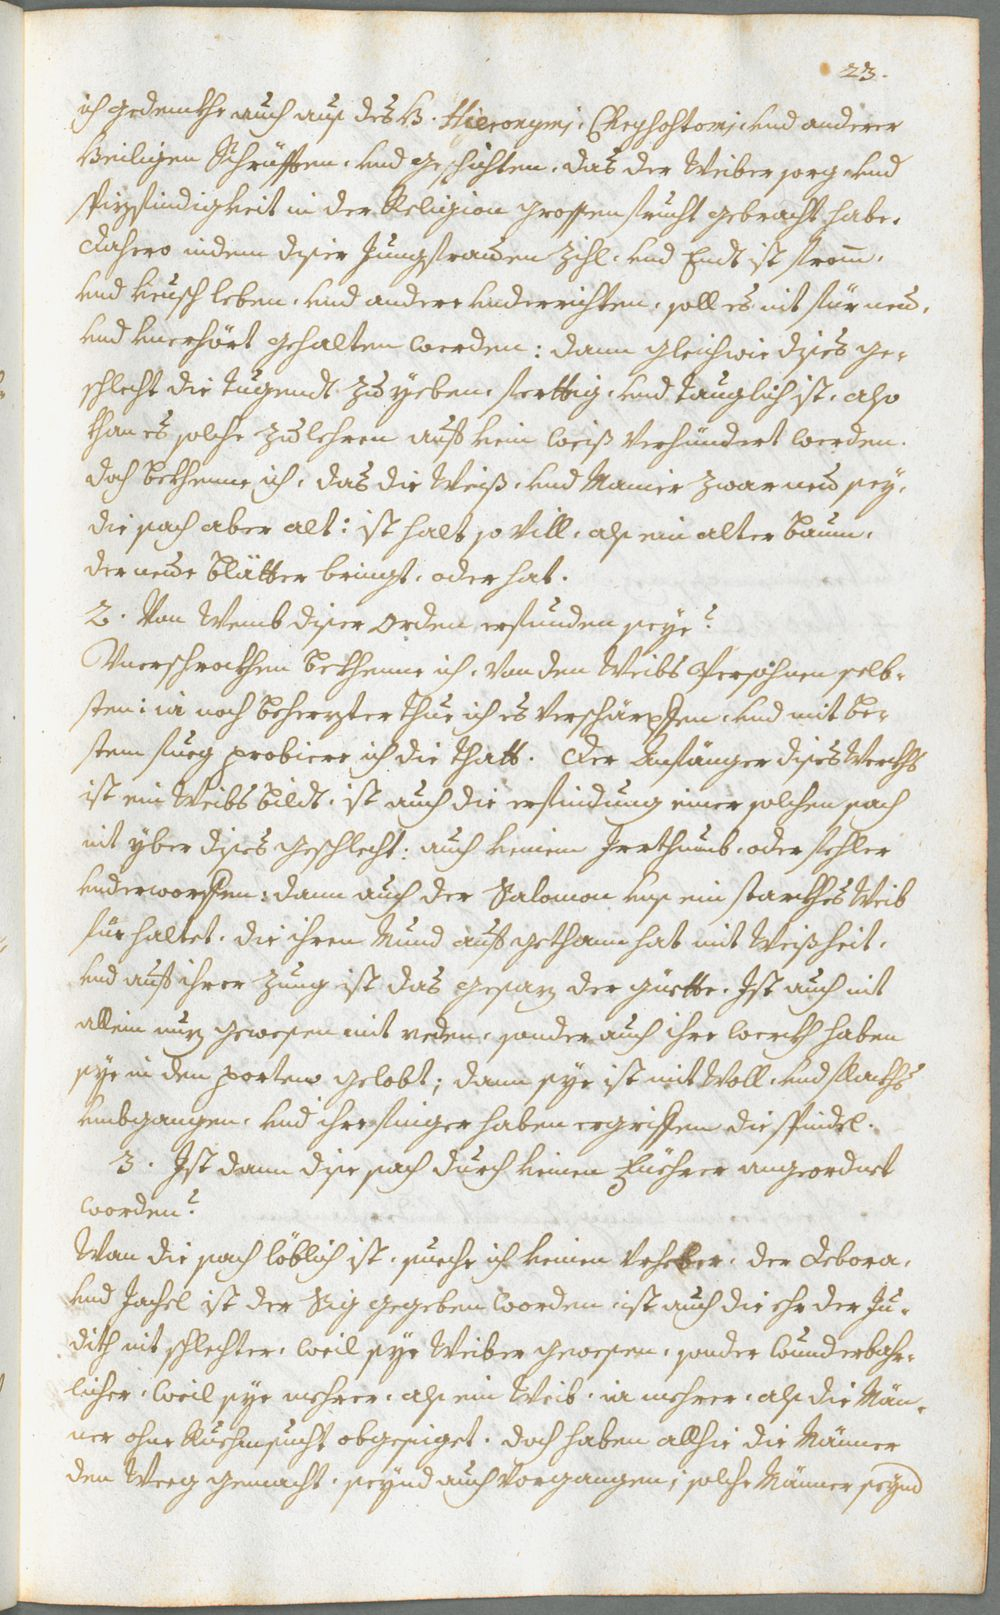 23.
ich gedenkhe auch auß des H. Hieronymj, Chrysostomj, und anderer
Heiligen Schrüfften, und geschichten, das der Weiber sorg und
spizfindigkeit in der Religion grossen frucht gebracht habe.
Dahero indem diser Jungfrawen zihl, und Endt ist fromm,
und keusch leben, und andere underrichten, soll es nit für new,
und unerhört gehalten werden: dann gleichwie dises ge-
schlecht die Tugendt zu yeben, ferttig, und tauglich ist, also
khan es solche zu lehren auf kein weiß verhündert werden.
doch bekhenne ich, das die Weiß, und Manier zwar new sey,
die sach aber alt: ist halt so vill, alß ein alter baum,
der newe blätter bringt, oder hat.
2. Von Wemb diser Orden erfunden seye?
Unerschrockhen bekhenne ich, von den Weibs Persohnen selb-
sten: ia noch beherzter thue ich es verschärpffen, und mit be-
stem fueg probiere ich die thatt. Der Anfänger dises Werckhs
ist ein Weibsbildt, ist auch die erfindung einer solchen sach
nit yber dises geschlecht: auch keinem Irrthumb, oder fehler
underworffen: dann auch der Salomon unß ein starckhes Weib
fürhaltet, die ihren Mund aufgethann hat mit Weißheit,
und auf ihrer zung ist das gesaz der güette. Ist auch nit
allein nuz gewesen mit reden, sonder auch ihre werckh haben
sye in den porten gelobt; dann sye ist mit Woll, und flachs
umbgangen, und ihre finger haben ergriffen die spindel.
3. Ist dann dise sach durch keinen Füehrer angeordnet
worden?
Wan die sach löblich ist, sueche ich keinen Urheber, der Debora,
und Jahel ist der Sig gegeben worden, ist auch die ehr der Ju-
dith nit schlechter, weil sye Weiber gewesen, sonder wunderbahr-
licher, weil sye mehrer, alß ein Weib, ia mehrer, alß die Män-
ner ohne Ruehmsucht obgesiget. doch haben allhie die Männer
den Weeg gemacht, seynd auch vorgangen; solche Männer seynd